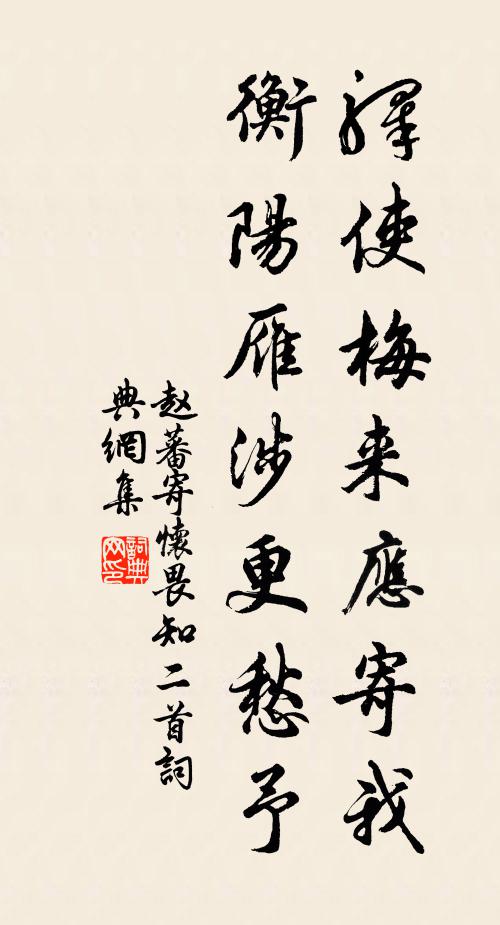 驛使梅来應寄我
衡陽雁涉更愁予
赵蕃寄懷畏知二首詞
典網集
詞典網印